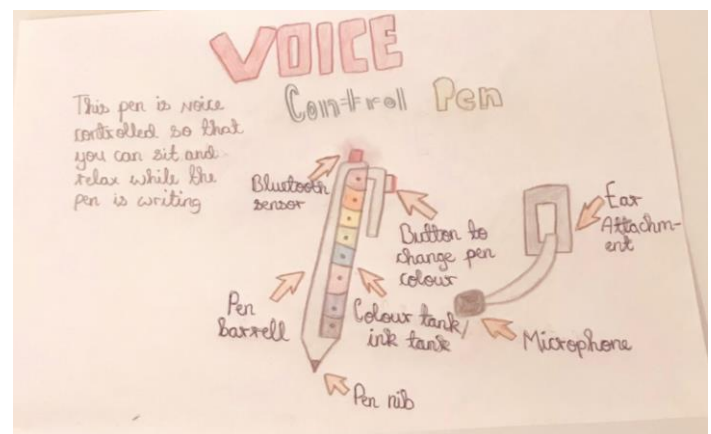 VOICE
Control Pen
This pen is voice
controlled so that
you can sit and
relax while the
pen is writing
Bluetooth
sensor
Button to
change pen
colour
Ear
Attachm-
ent
Pen
barrell
Colour tank/
ink tank
Microphone
Pen nib